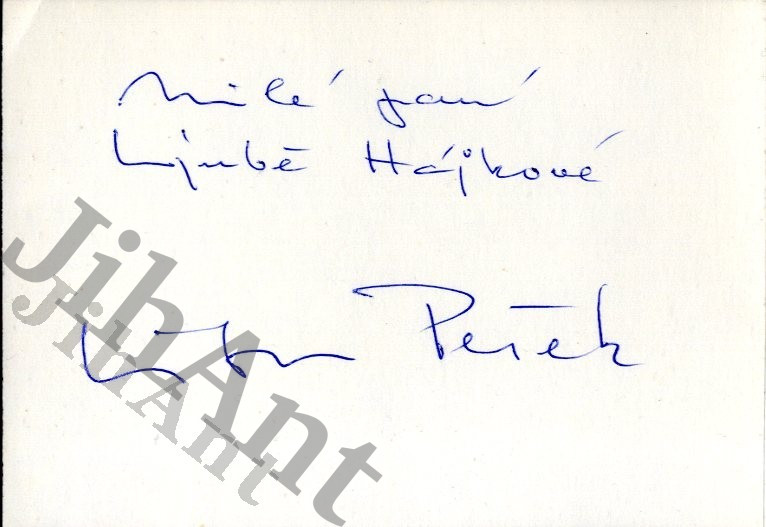 Milé paní
Ljubě Hájkové
Libor Pešek
JihAnt
JihAnt